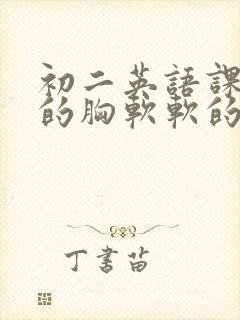 初二英語課
的胸軟軟的
丁書苗